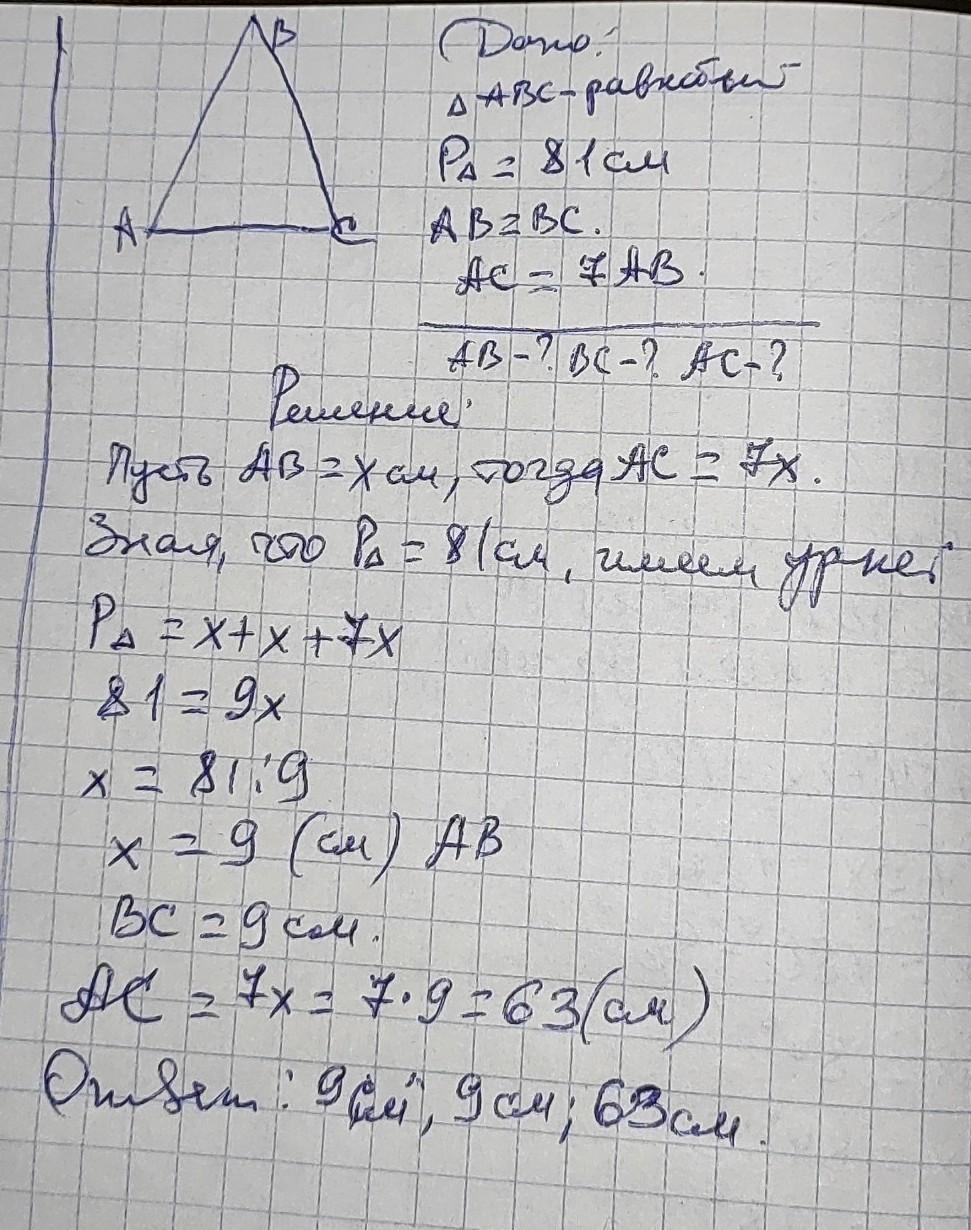 B
A
C
Дано:
△ ABC - равнобный
P△ = 81 см
AB = BC.
AC = 7 AB.
AB - ? BC - ? AC - ?
Решение:
Пусть AB = x см, тогда AC = 7x.
Зная, что P△ = 81 см, имеем ур-ие:
P△ = x + x + 7x
81 = 9x
x = 81 : 9
x = 9 (см) AB
BC = 9 см.
AC = 7x = 7 · 9 = 63 (см)
Ответ: 9 см, 9 см; 63 см.